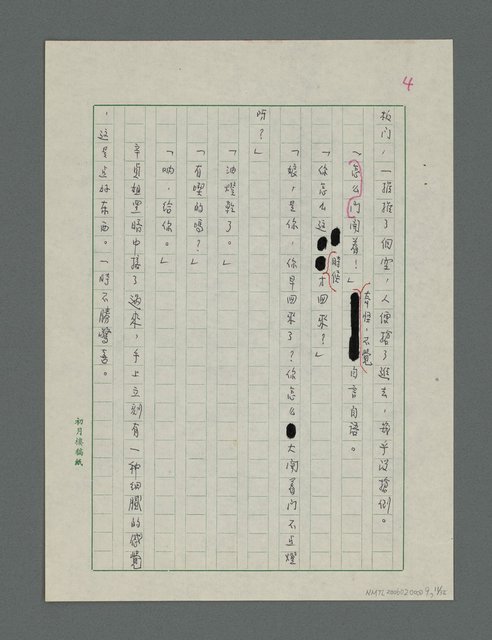 4
板门,一推推了個空,人便搶了進去,幾乎没搶倒。
「怎么门開着!」奇怪,不覺自言自語。
「你怎么這時候才回來?」
「娘,是你,你早回來了?你怎么大開着门不点燈
呀?」
「油燈乾了。」
「有喫的嗎?」
「吶,給你。」
辛貞姐黑暗中接了過來,手上立刻有一种细膩的感覺
,這是点好东西。一時不勝驚喜。
初月樓稿紙
NMTL20060200009